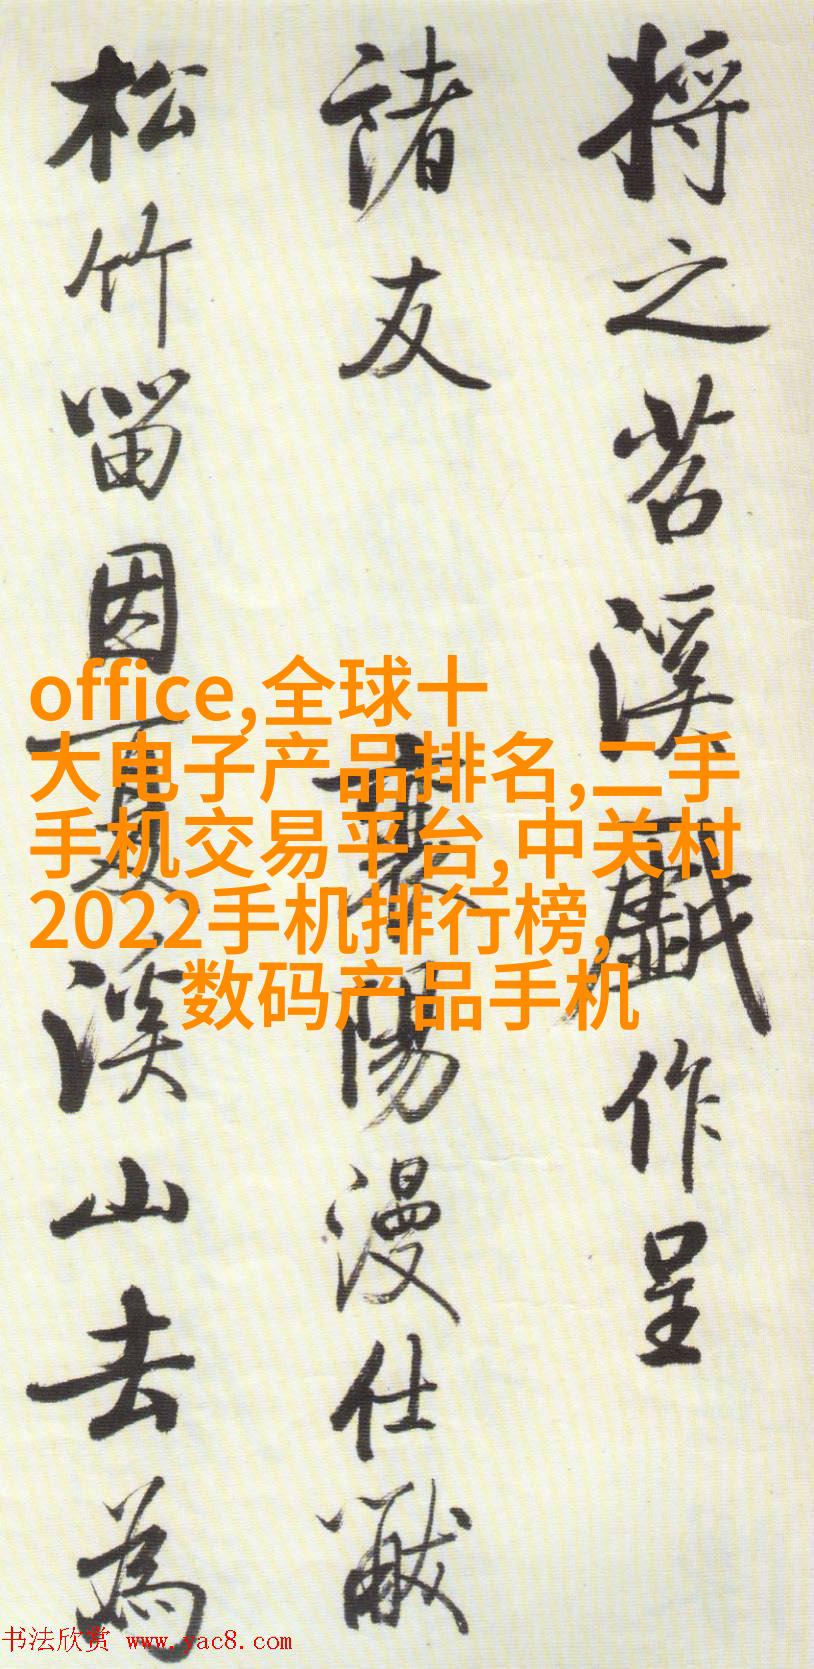 将之苕溪戯作呈
諸友
襄陽漫仕黻
松竹留因夏溪山去為
office,全球十
大电子产品排名,二手
手机交易平台,中关村
2022手机排行榜,
数码产品手机
书法欣赏 www.yac8.com